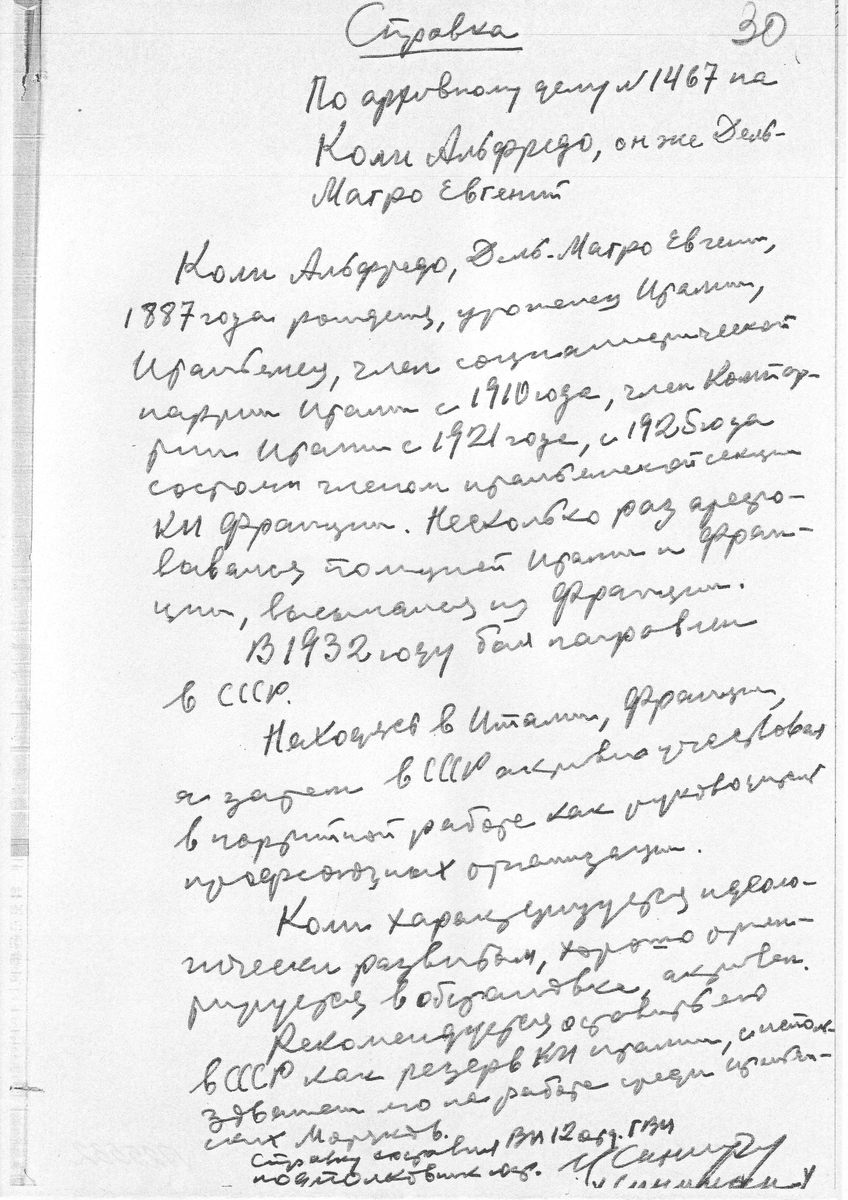 Справка
30
По архивному делу N 1467 на
Коли Альфредо, он же Дель-
Матро Евгений
Коли Альфредо, Дель-Матро Евгений,
1887 года рождения, уроженец Италии,
Итальянец, член социалистической
партии Италии с 1910 года, член Компар-
тии Италии с 1921 года, с 1925 года
состоял членом итальянской секции
КП Франции. Несколько раз аресто-
вывался полицией Италии и Фран-
ции, высылался из Франции.
В 1932 году был направлен
в СССР.
Находясь в Италии, Франции,
а затем в СССР активно участвовал
в партийной работе как руководитель
профсоюзных организации.
Коли характеризуется идеоло-
гически развитым, хорошо ориен-
тируется в обстановке, активен.
Рекомендуется оставить его
в СССР как резерв КП Италии, с исполь-
зованием его на работе среди италья-
ских моряков.
Справку составил ВП 12 отд. ГВП
подполковник юст.